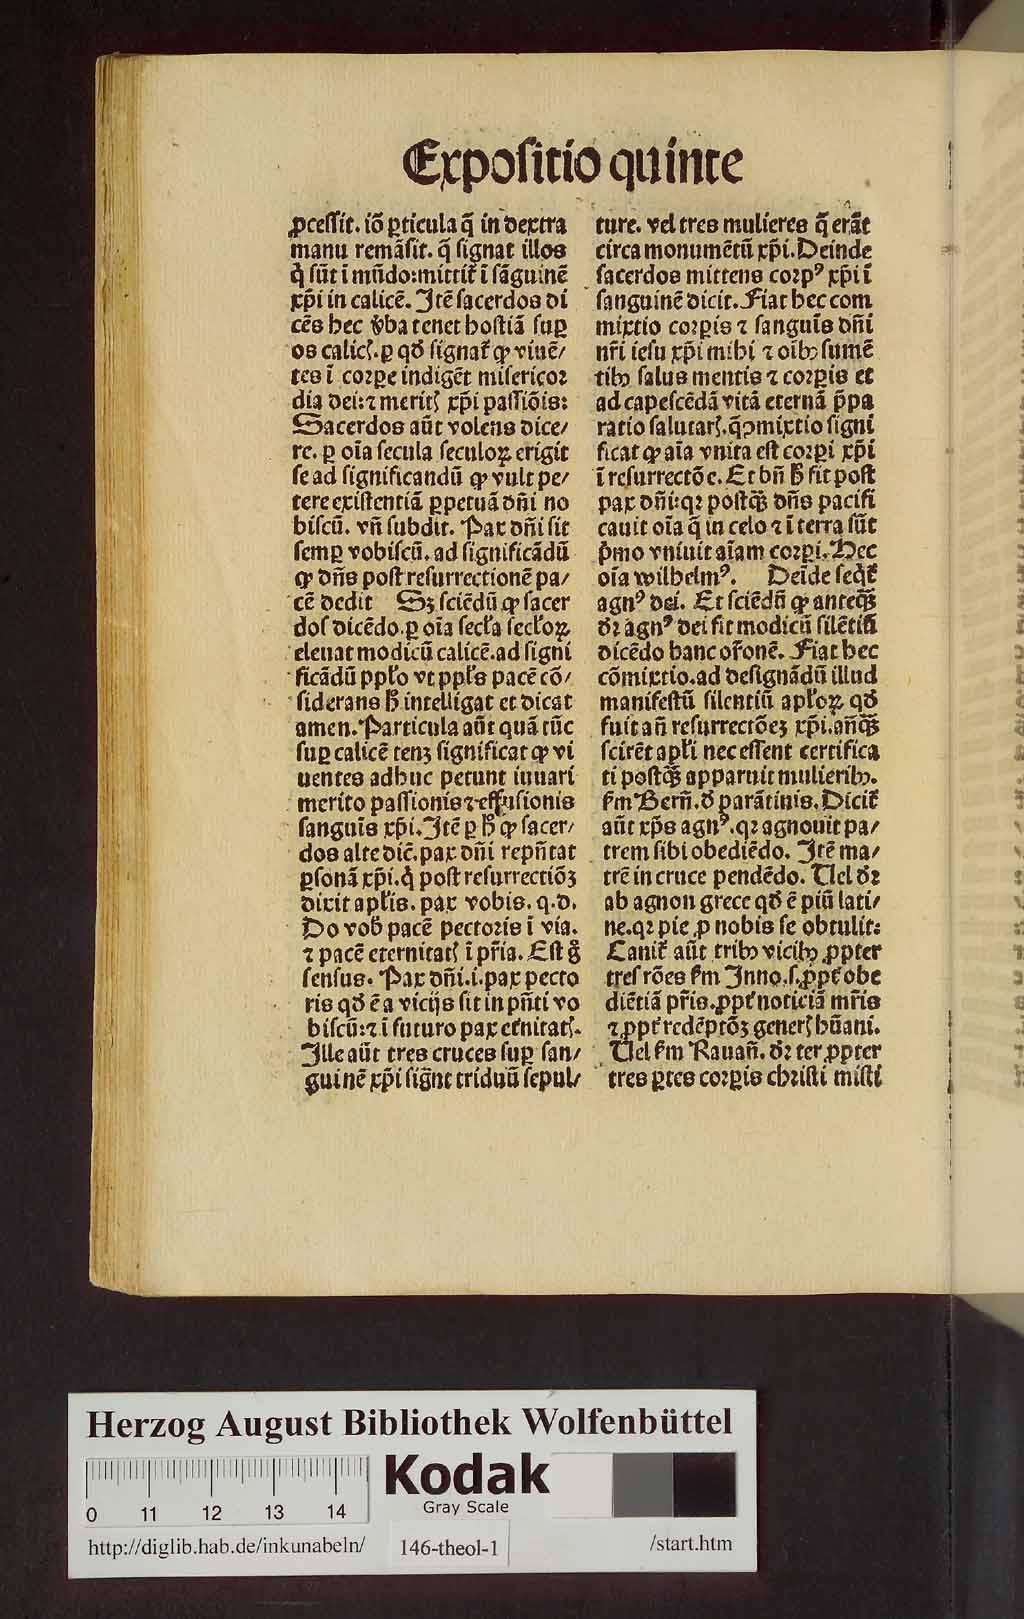 Expositio quinte
ꝓcessit. iō ꝑticula q̄ in dextra
manu remāsit. q̄ signat illos
q̇ sūt ī mūdo: mittit̄ ī sāguinē
xp̄i in calicē. Itē sacerdos di
cēs hec v̓ba tenet hostiā suꝑ
os calicꝭ. ꝑ qď signat̄ ꝙ viuē/
tes ī corꝑe indigēt misericor
dia dei: ⁊ meritꝭ xp̄i passiōis:
Sacerdos aūt volens dice/
re. ꝑ oīa secula seculoꝝ erigit
se ad significandū ꝙ vult pe/
tere existentiā ꝑpetuā dn̄i no
biscū. vn̄ subdit. Pax dn̄i sit
semꝑ vobiscū. ad significādū
ꝙ dn̄s post resurrectionē pa/
cē dedit Sꝫ sciēdū ꝙ sacer
dos dicēdo. ꝑ oīa secl̄a secl̄oꝝ
eleuat modicū calicē. ad signi
ficādū ppl̄o vt ppl̄s pacē cō/
siderans ḣ intelligat et dicat
amen. Particula aūt quā tūc
suꝑ calicē tenꝫ significat ꝙ vi
uentes adhuc petunt iuuari
merito passionis ⁊ effusionis
sanguīs xp̄i. Itē ꝑ ḣ ꝙ sacer/
dos alte dic̄. pax dn̄i repn̄tat
ꝑsonā xp̄i. q̇ post resurrectiōꝫ
dixit apl̄is. pax vobis. q.d.
Do vob̄ pacē pectoris ī via.
⁊ pacē eternitatꝭ ī pr̄ia. Est g̊
sensus. Pax dn̄i .i. pax pecto
ris qď ē a vicijs sit in pn̄ti vo
biscū: ⁊ ī futuro pax et̄nitatꝭ.
Ille aūt tres cruces suꝑ san/
guinē xp̄i sign̄t triduū sepul/
ture. vel tres mulieres q̄ erāt
circa monumētū xp̄i. Deinde
sacerdos mittens corpꝰ xp̄i ī
sanguinē dicit. Fiat hec com
mixtio corꝑis ⁊ sanguīs dn̄i
nr̄i iesu xp̄i mihi ⁊ oībꝫ sumē
tibꝫ salus mentis ⁊ corꝑis et
ad capescēdā vitā eternā p̄pa
ratio salutarꝭ. q̄ ꝯmixtio signi
ficat ꝙ aīa vnita est corꝑi xp̄i
ī resurrectōe. Et bn̄ ḣ fit post
pax dn̄i: qꝛ postq̄ꝫ dn̄s pacifi
cauit oīa q̄ in celo ⁊ ī terra sūt
pͥmo vniuit aīam corꝑi. Hec
oīa wilhelmꝰ. Deīde seq̇t̄
agnꝰ dei. Et sciēdū ꝙ anteq̄ꝫ
dꝛ agnꝰ dei fit modicū silētiū
dicēdo hanc or̄onē. Fiat hec
cōmixtio. ad designādū illud
manifestū silentiū apl̄oꝝ qď
fuit an̄ resurrectōeꝫ xp̄i. an̄q̄ꝫ
scirēt apl̄i nec essent certifica
ti postq̄ꝫ apparuit mulieribꝫ.
ẜm Bern̄. ď parātinis. Dicit̄
aūt xp̄s agnꝰ. qꝛ agnouit pa/
trem sibi obediēdo. Itē ma/
trē in cruce pendēdo. Uel dꝛ
ab agnon grece qď ē piū lati/
ne. qꝛ pie ꝓ nobis se obtulit:
Canit̄ aūt tribꝫ vicibꝫ ꝓpter
tres rōes ẜm Inno.s. ꝓpt̄ obe
diētiā pr̄is. ꝓpt̄ noticiā mr̄is
⁊ ꝓpt̄ redēptōꝫ generꝭ hūani.
Uel ẜm Rauan̄. dꝛ ter ꝓpter
tres ꝑtes corꝑis christi misti
Herzog August Bibliothek Wolfenbüttel
0 11 12 13 14
Kodak
Gray Scale
http://diglib.hab.de/inkunabeln/ 146-theol-1 /start.htm